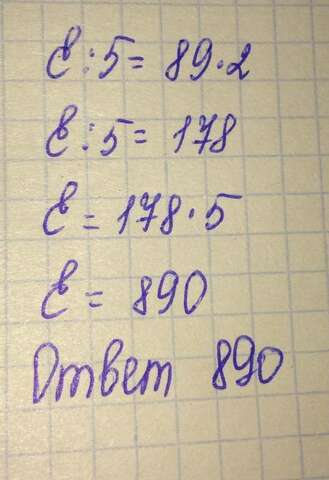 Ɛ:5= 89·2
Ɛ:5= 178
Ɛ = 178·5
Ɛ = 890
Ответ 890